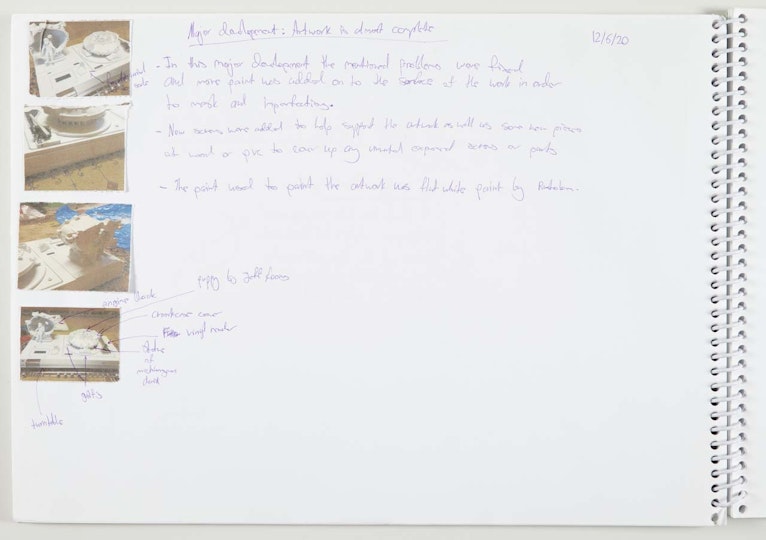 Major development: Artwork is almost complete
12/6/20
- In this major development the mentioned problems were fixed
and more paint was added on to the surface of the work in order
to mask and imperfections.
- New screws were added to help support the artwork as well as some new pieces
of wood or pvc to cover up any unwanted exposed screws or parts
- The paint used to paint the artwork was flat white paint by
puppy by Jeff Koons
engine block
vinyl reader
statue
of
david
turntable